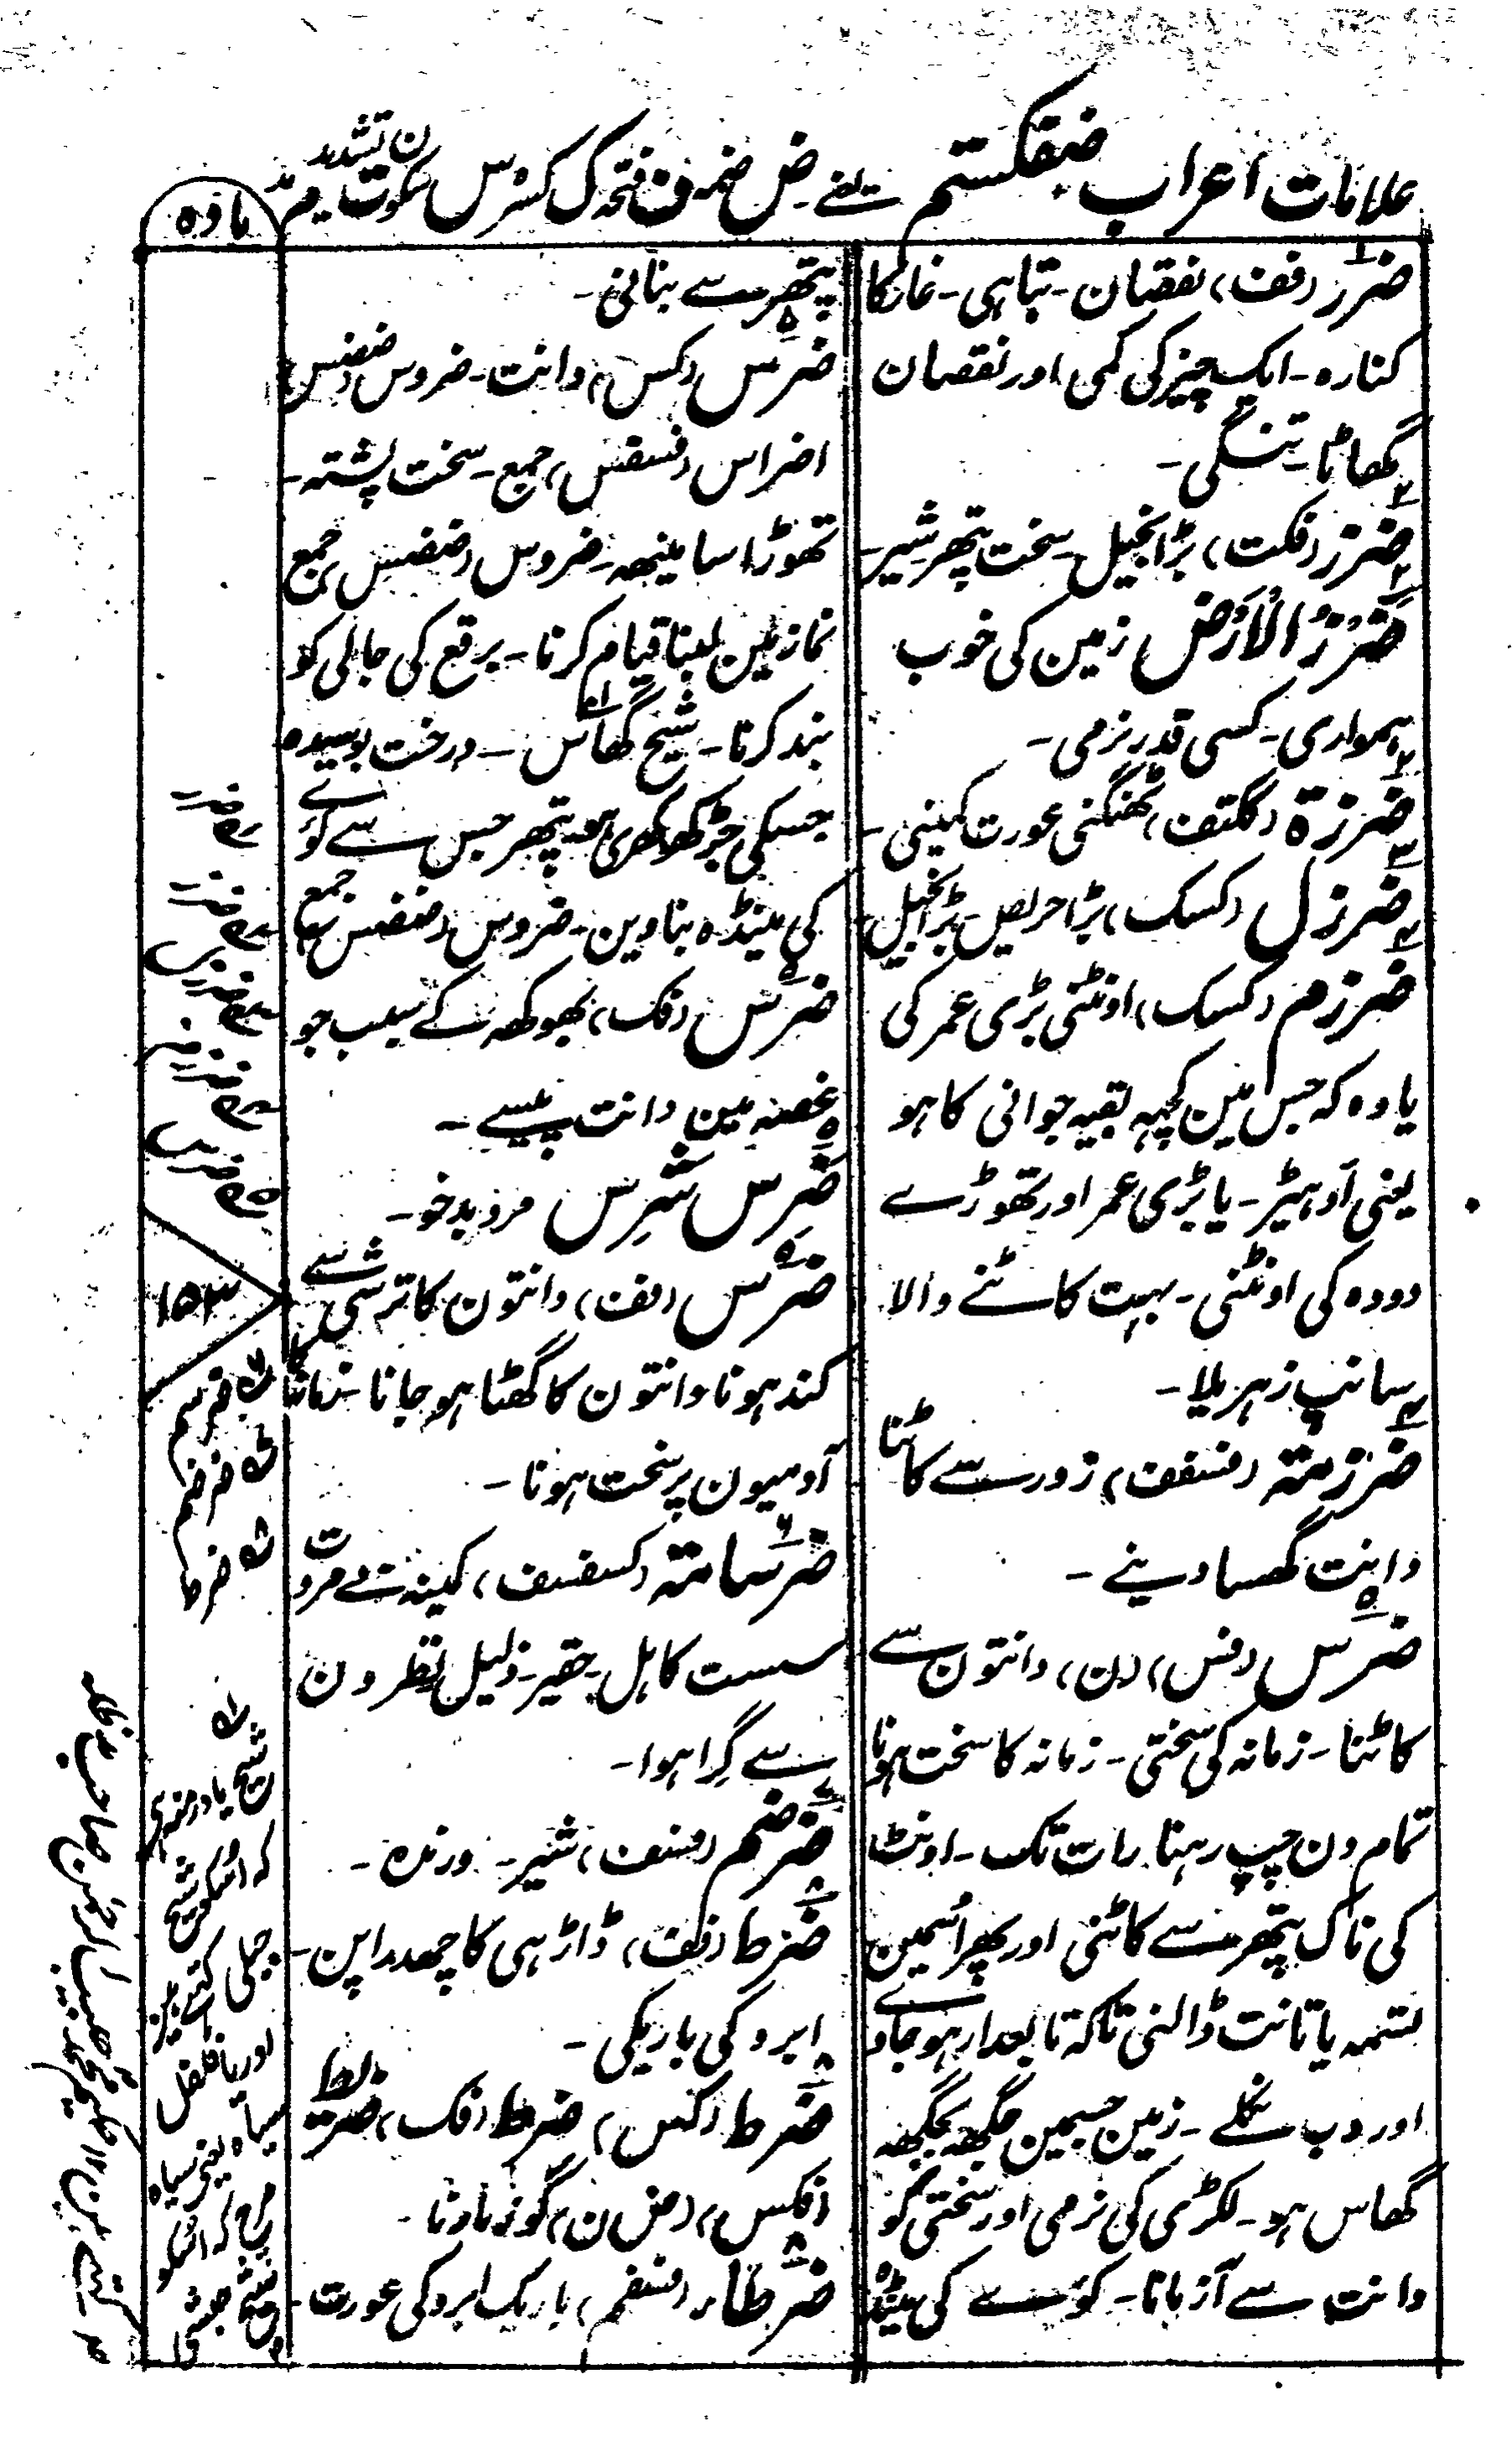 علامات اعراب ضفکستم یعنے ض ضمہ ف فتحہ ک کسرہ س سکوت م
ن تشدید مد
مادہ
ضرر (فف) نقصان - تباہی - غار کا
کنارہ - ایک چیز کی کمی اور نقصان
گھاٹا - تنگی -
ضرز (فکت) بڑا بخیل - سخت پتھر شیر -
ضَرْزُ الْاَرْض زمین کی خوب
ہمواری - کسی قدر نرمی -
ضرزۃ (کتف) ٹھنگنی عورت کمینی -
ضرزل (کسک) بڑا حریص - بڑا بخیل
ضرزم (کسک) اونٹنی بڑی عمر کی
یا وہ کہ جس مین کچہہ بقیہ جوانی کا ہو
یعنی اَدہیڑ - یا بڑی عمر اور تھوڑے
دودہ کی اونٹنی - بہت کاٹنے والا
سانپ زہریلا -
ضرزمۃ (فسفف) زور سے کاٹنا
دانت گھسا دینے -
ضرس (فس) (ن) دانتون سے
کاٹنا - زمانہ کی سختی - زمانہ کا سخت ہونا
تمام دن چپ رہنا رات تک - اونٹ
کی ناک پتھر سے کاٹنی اور پھر اسمین
تسمہ یا تانت ڈالنی تاکہ تابعدار ہو جاوے
اور دب نکلے - زمین جسمین جگھہ بجگھہ
گھاس ہو - لکڑی کی نرمی اور سختی کو
دانت سے آزمانا - کوئے کی مینڈہ
پتھر سے بنانی -
ضرس (کس) دانت - ضروس (ضفس)
اضراس (فسفس) جمع - سخت پشتہ -
تھوڑا سا مینھہ - ضروس (ضفس) جمع
نماز مین لمبا قیام کرنا - برقع کی جالی کو
بند کرنا - شیح گھاس - درخت بوسیدہ
جسکی جڑ کھوکھری ہو - پتھر جس سے کوئے
کی مینڈہ بناوین - ضروس (ضفس) جمع
ضرس (فک) بھوکھہ کے سبب جو
غصہ مین دانت پیسے -
ضَرِس شَرِس مرد بدخو -
ضرس (فف) دانتون کا ترشی سے
کند ہونا دانتون کا کھٹا ہو جانا - زمانہ کا
آدمیون پر سخت ہونا -
ضرسامۃ (کسفف) کمینہ بے مروت
سست کاہل - حقیر - ذلیل نظرون
سے گرا ہوا -
ضرضم (فسف) شیر - درندہ -
ضرط (فف) ڈاڑہی کا چھدراپن -
ابرو کی باریکی -
ضرط (کس) ضرط (فک) ضریط
(فکس) (ض ن) گوز مارنا -
ضرطاء (فسفم) باریک ابرو کی عورت -
۱۵۳
ضرسم
ضرضم
ضرط
شیح یا درمنہ ہی
کہ اسکو شیح
جبلی کہتے ہین
اور یا فلفل
سیاہ یعنی سیاہ
مرچ کہ اسکو